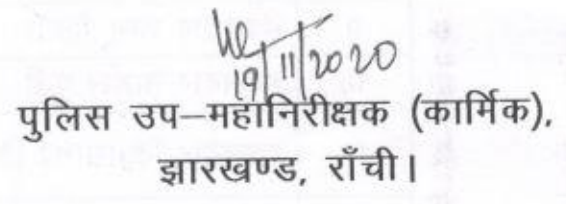 19/11/2020
पुलिस उप–महानिरीक्षक (कार्मिक),
झारखण्ड, राँची।